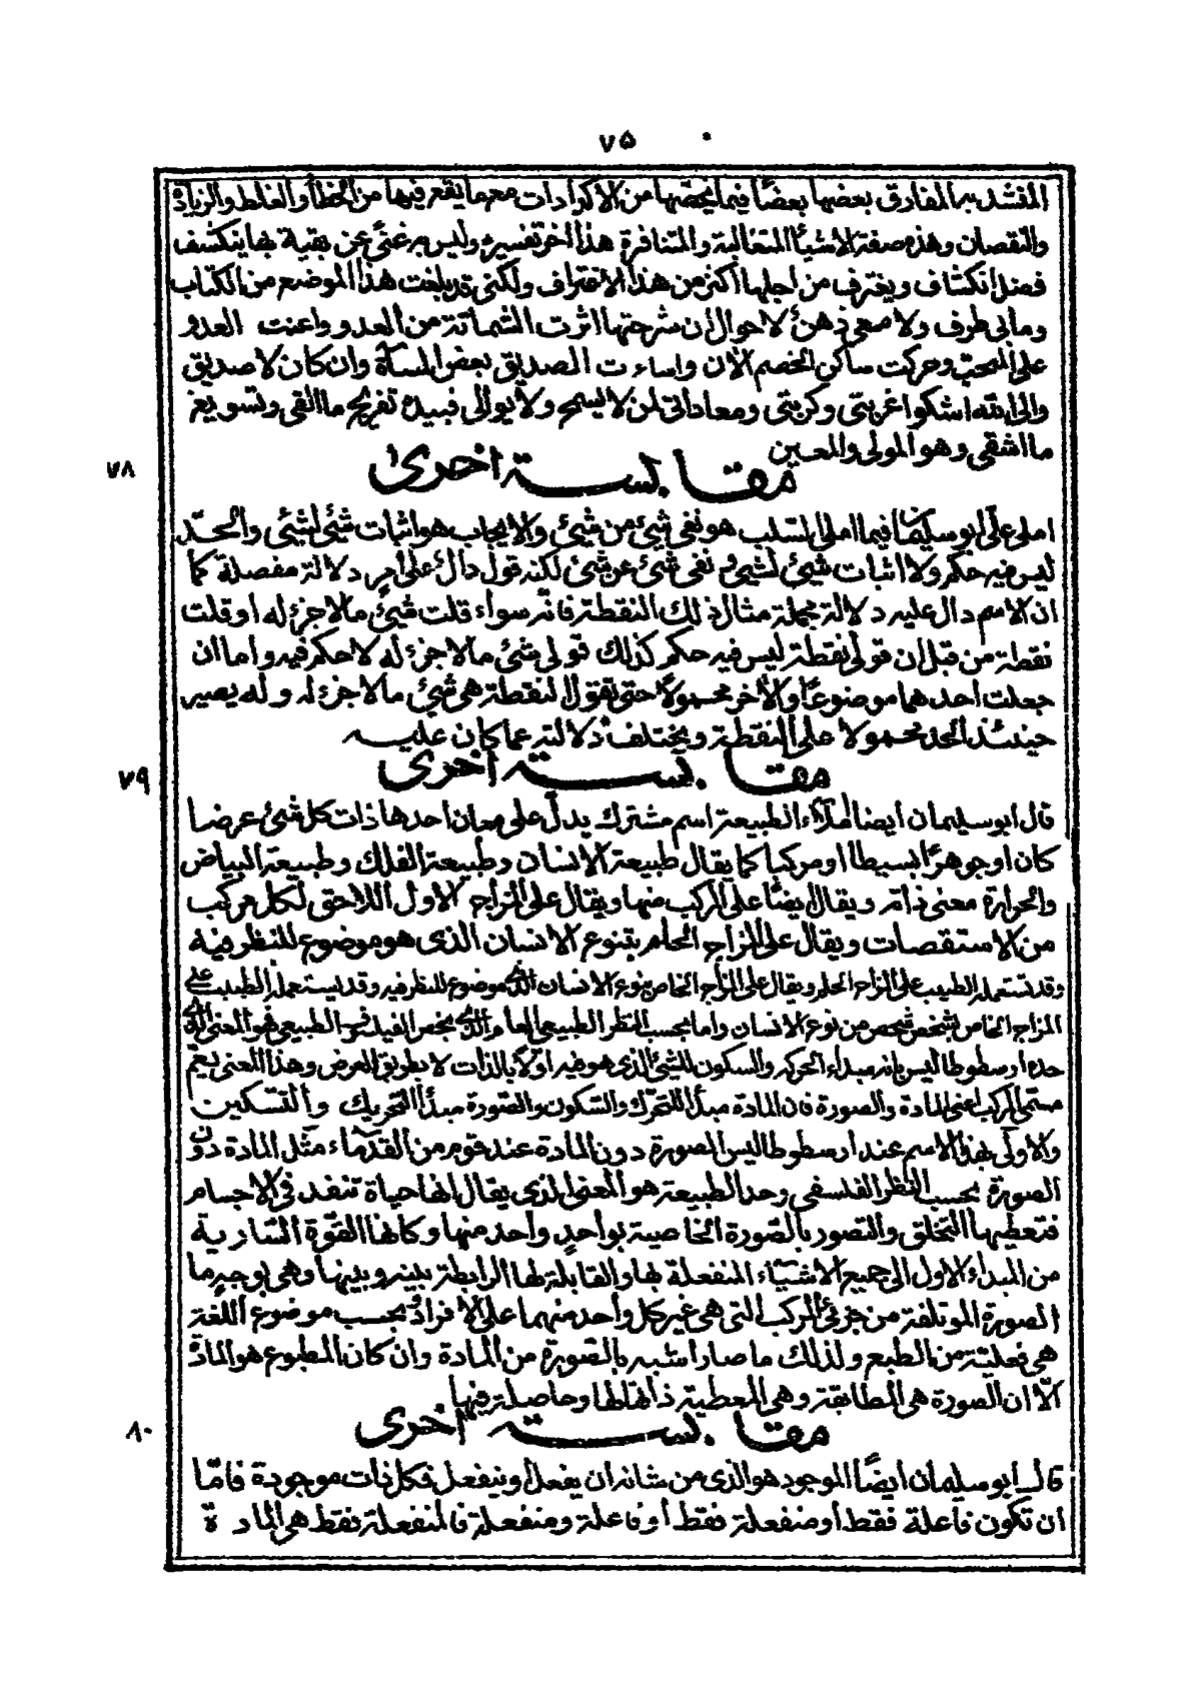 ٧٥
المفسد به المفارق بعضها بعضًا فيما يخصها من الارادات مع ما يقع فيها من الخطأ والغلط والزيادة
والنقصان وهذه صفة الاشياء المتغالبة والمتنافرة هذا اخر تفسيره وليس به غنىً عن بقية بها ينكشف
فضل انكشاف ويغترف من اجلها اكثر من هذا الاغتراف ولكني قد بلغت هذا الموضع من الكتاب
وما بي طرف ولا معي ذهن لاحوال ان شرحتها اثرت الشماتة من العدو واعنت العدو
على المحب وحركت ساكن الخصم الآن واساءت الصديق بعض المسآة وان كان لا صديق
والى الله اشكو اغربتي وكربتي ومعاداتي لمن لا يسمح ولا يوالي فبيده تفريج ما القي وتسويغ
ما اشقي وهو المولى والمعين
مقابسة اخرى
٧٨
املى على ابو سليمان فيما املى السلب هو نفي شيئ من شيئ والايجاب هو اثبات شيئ لشيئ والحد
ليس فيه حكم ولا اثبات شيئ لشيئ و نفي شيئ عن شيئ لكنه قول دال على امر دلالة مفصلة كما
ان الاسم دال عليه دلالة مجملة مثال ذلك النقطة فانه سواء قلت شيئ مالا جزء له او قلت
نقطة من قبل ان قولي نقطة ليس فيه حكم كذلك قولي شئ مالا جزء له لا حكم فيه واما ان
جعلت احدهما موضوعًا والأخر محمولاً حتى تقول النقطة هي شيئ مالا جزء له وله يصير
حينئذ الحد محمولا على النقطة ويختلف دلالته عما كان عليه
مقابسة اخرى
٧٩
قال ابو سليمان ايضا املاء الطبيعة اسم مشترك يدل على معان احدها ذات كل شئ عرضا
كان او جوهرًا بسيطا او مركبا كما يقال طبيعة الانسان وطبيعة الفلك وطبيعة البياض
والحرارة معنى ذاته ويقال ايضًا على المركب منها ويقال على المزاج الاول اللاحق لكل مركب
من الاستقصات ويقال على المزاج العام بتنوع الانسان الذي هو موضوع للنظر فيه
وقد تستعمله الطبيب على المزاج الحلم ويقال على المزاج الخاص بنوع الانسان الذي موضوع للنظر فيه وقد يستعمله الطبيب على
المزاج الخاص بشخص شخص من نوع الانسان واما بحسب النظر الطبيعي العام الذي يخص الفيلسوف الطبيعي فهو المعنى الذي
حده ارسطوطاليس بانه مبداء الحركه والسكون للشيئ الذي هو فيه اولاً بالذات لا بطريق العرض وهذا المعنى يعم
مستى المركب اعنى المادة والصورة فان المادة مبدأ للتحرك والسكون والصورة مبدأ التحريك والتسكين
والاولى بهذا الاسم عند ارسطوطاليس الصورة دون المادة عند قوم من القدماء مثل المادة دون
الصورة بحسب النظر الفلسفي وحد الطبيعة هو المعنى الذي يقال انها حياة تنفذ في الاجسام
فتعطيها التخلق والتصور بالصورة الخاصية بواحدٍ واحد منها وكانها القوة السارية
من المبداء الاول الى جميع الاشياء المنفعلة بها والقابلة لها الرابطة بينه وبينها وهي بوجهٍ ما
الصورة الموتلفة من جزئي المركب التي هي غير كل واحد منهما على الافراد وبحسب موضوع اللغة
هي فعلية من الطبع ولذلك ما صار اشبه بالصورة من المادة وان كان المطبوع هو المادة
الّا ان الصورة هي الطابقة وهي المعطية ذاتها لها وحاصلة فيها
مقابسة اخرى
٨٠
قال أبو سليمان أيضًا الموجود هو الذي من شانه ان يفعل او ينفعل فكل ذات موجودة فامّا
أن تكون فاعلة فقط أو منفعلة فقط أو فاعلة ومنفعلة فالمنفعلة فقط هي المادة